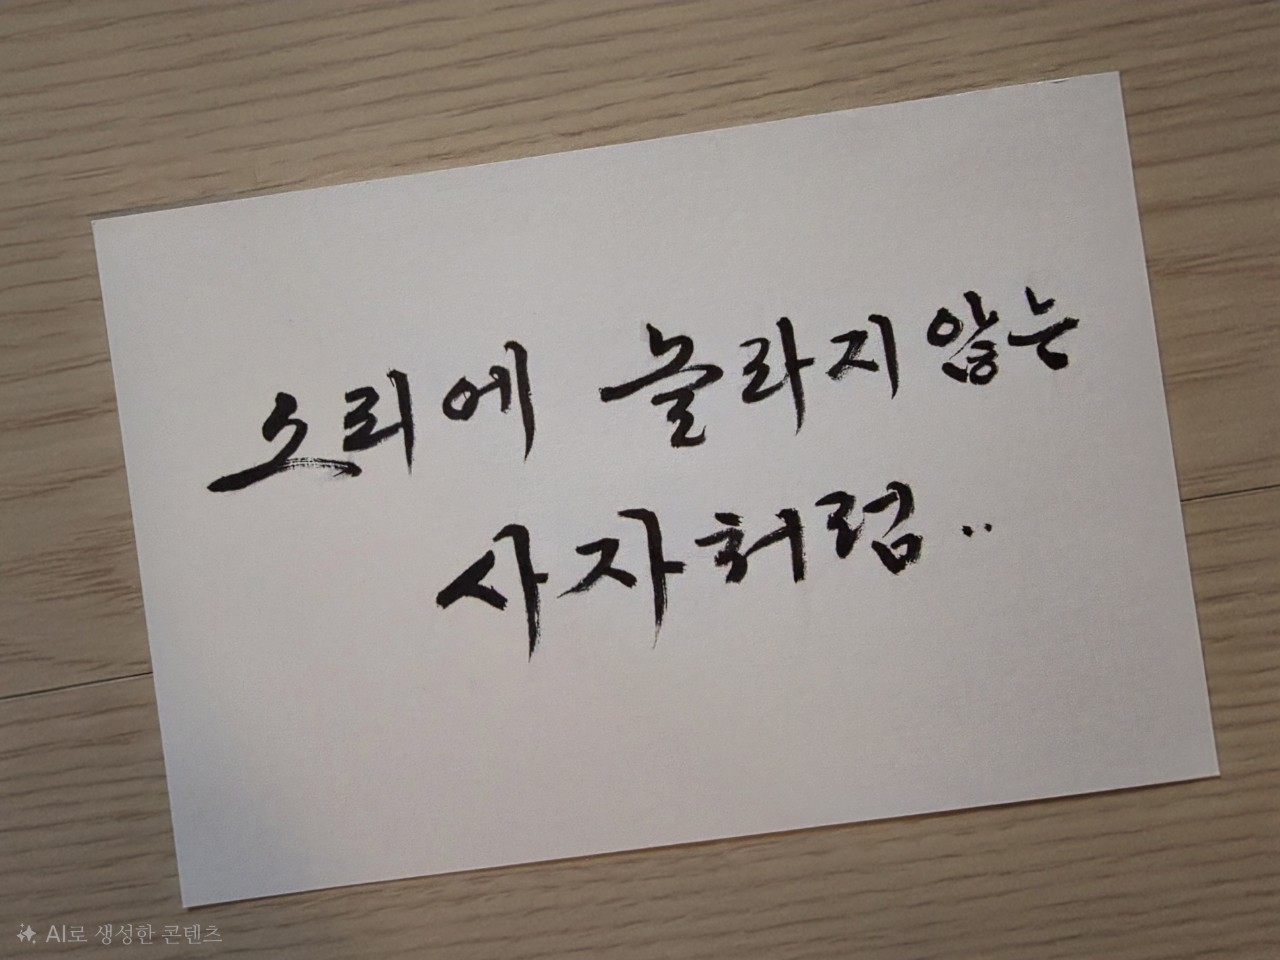 소리에 놀라지 않는
사자처럼..
AI로 생성한 콘텐츠